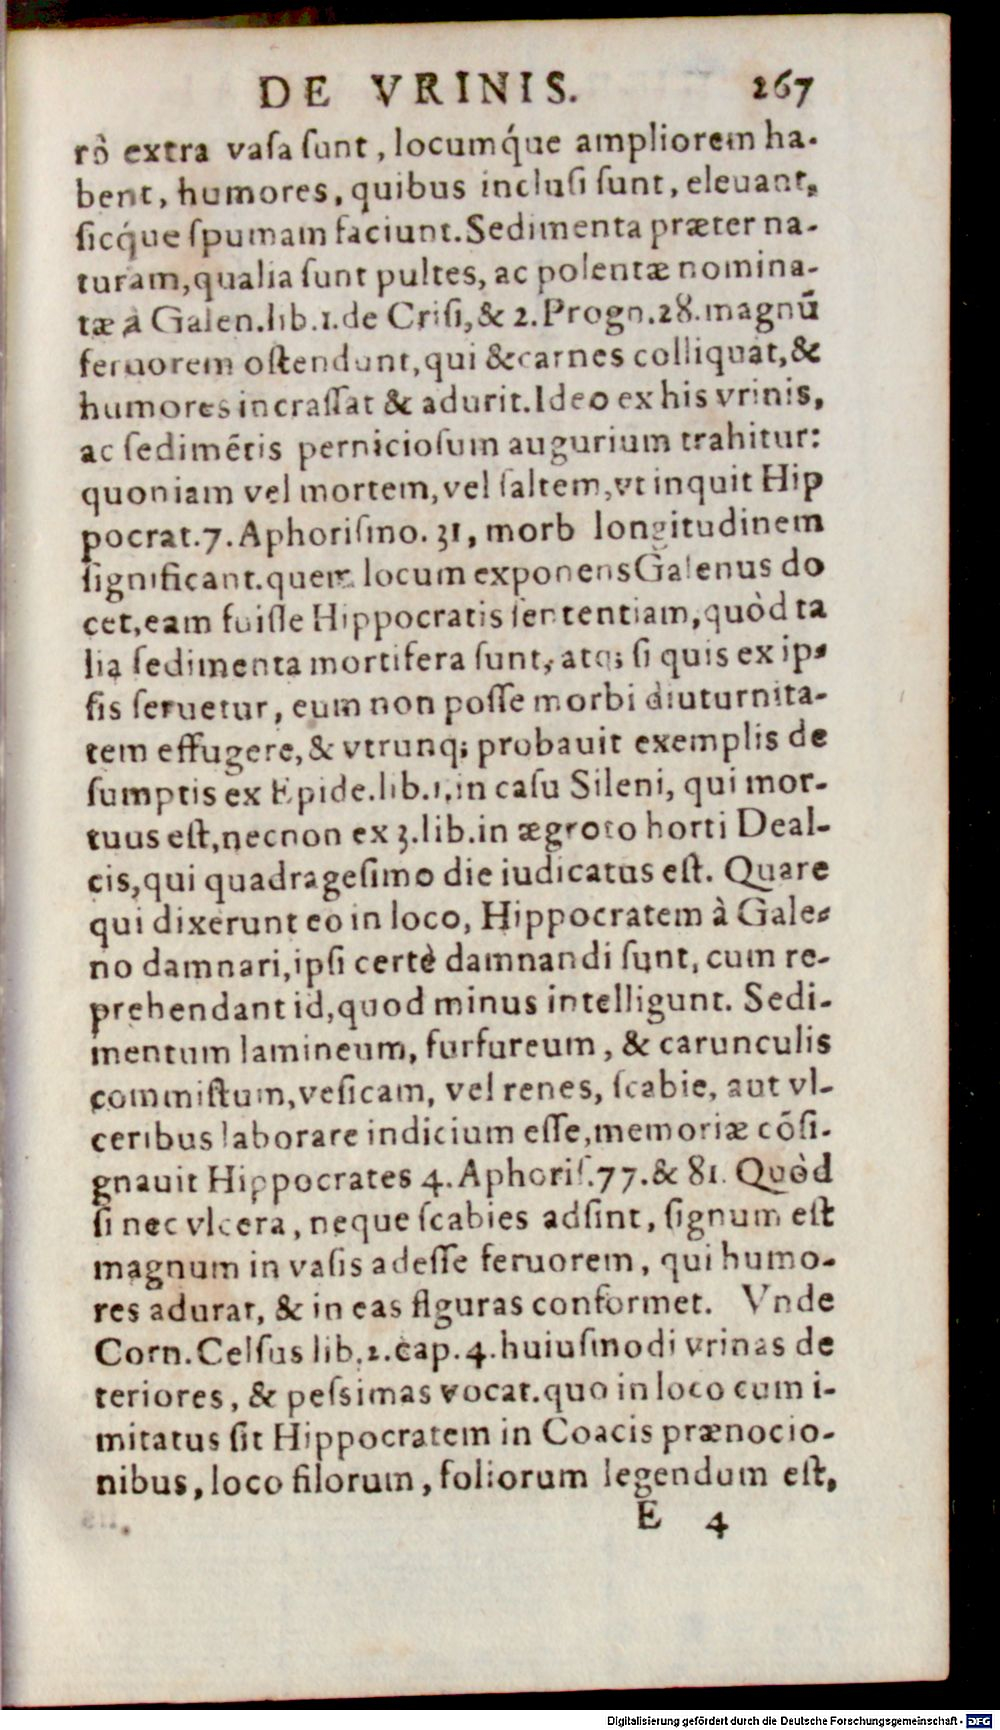 DE VRINIS. 267
rò extra vasa sunt, locumq́ue ampliorem ha-
bent, humores, quibus inclusi sunt, eleuant,
sicq́ue spumam faciunt. Sedimenta præter na-
turam, qualia sunt pultes, ac polentæ nomina-
tæ à Galen. lib. 1. de Crisi, & 2. Progn. 28. magnū
feruorem ostendunt, qui & carnes colliquat, &
humores incrassat & adurit. Ideo ex his vrinis,
ac sedimētis perniciosum augurium trahitur:
quoniam vel mortem, vel saltem, vt inquit Hip
pocrat. 7. Aphorismo. 31, morb longitudinem
significant. quem locum exponens Galenus do
cet, eam fuisse Hippocratis sententiam, quòd ta
lia sedimenta mortifera sunt, atq; si quis ex ip-
sis seruetur, eum non posse morbi diuturnita-
tem effugere, & vtrunq; probauit exemplis de
sumptis ex Epide. lib. 1. in casu Sileni, qui mor-
tuus est, necnon ex 3. lib. in ægroto horti Deal-
cis, qui quadragesimo die iudicatus est. Quare
qui dixerunt eo in loco, Hippocratem à Gale-
no damnari, ipsi certè damnandi sunt, cum re-
prehendant id, quod minus intelligunt. Sedi-
mentum lamineum, furfureum, & carunculis
commistum, vesicam, vel renes, scabie, aut vl-
ceribus laborare indicium esse, memoriæ cōsi-
gnauit Hippocrates 4. Aphoris. 77. & 81. Quòd
si nec vlcera, neque scabies adsint, signum est
magnum in vasis adesse feruorem, qui humo-
res adurat, & in eas figuras conformet. Vnde
Corn. Celsus lib. 2. cap. 4. huiusmodi vrinas de
teriores, & pessimas vocat. quo in loco cum i-
mitatus sit Hippocratem in Coacis prænocio-
nibus, loco filorum, foliorum legendum est,
E 4
Digitalisierung gefördert durch die Deutsche Forschungsgemeinschaft - DFG